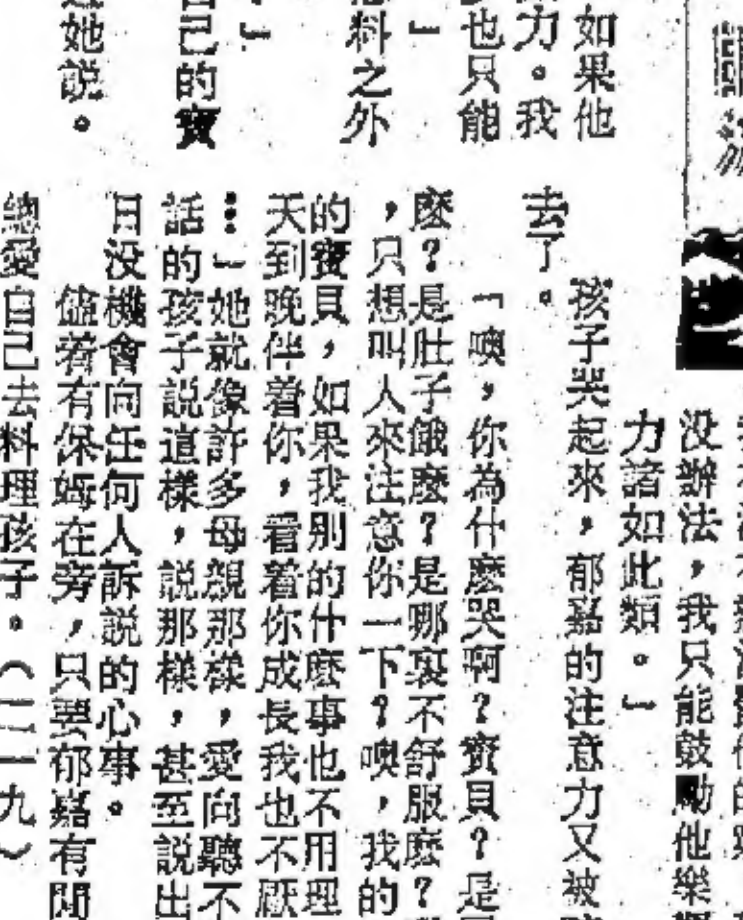 如果他
力。我
也只能
」
料之外
」
己的寶
她説。
没辦法,我只能鼓勵他樂
力諸如此類。」
孩子哭起來,郁嘉的注意力又被
去了。
「噢,你為什麽哭啊?寶貝?是
麽?是肚子餓麽?是哪裏不舒服麽?
,只想叫人來注意你一下?噢,我的
的寶貝,如果我別的什麽事也不用理
天到晚伴着你,看着你成長我也不厭
…」她就像許多母親那樣,愛向聽不
話的孩子説這樣,説那樣,甚至説出
没機會向任何人訴説的心事。
儘着有保姆在旁,只要郁嘉有閒
總愛自己去料理孩子。(二一九)